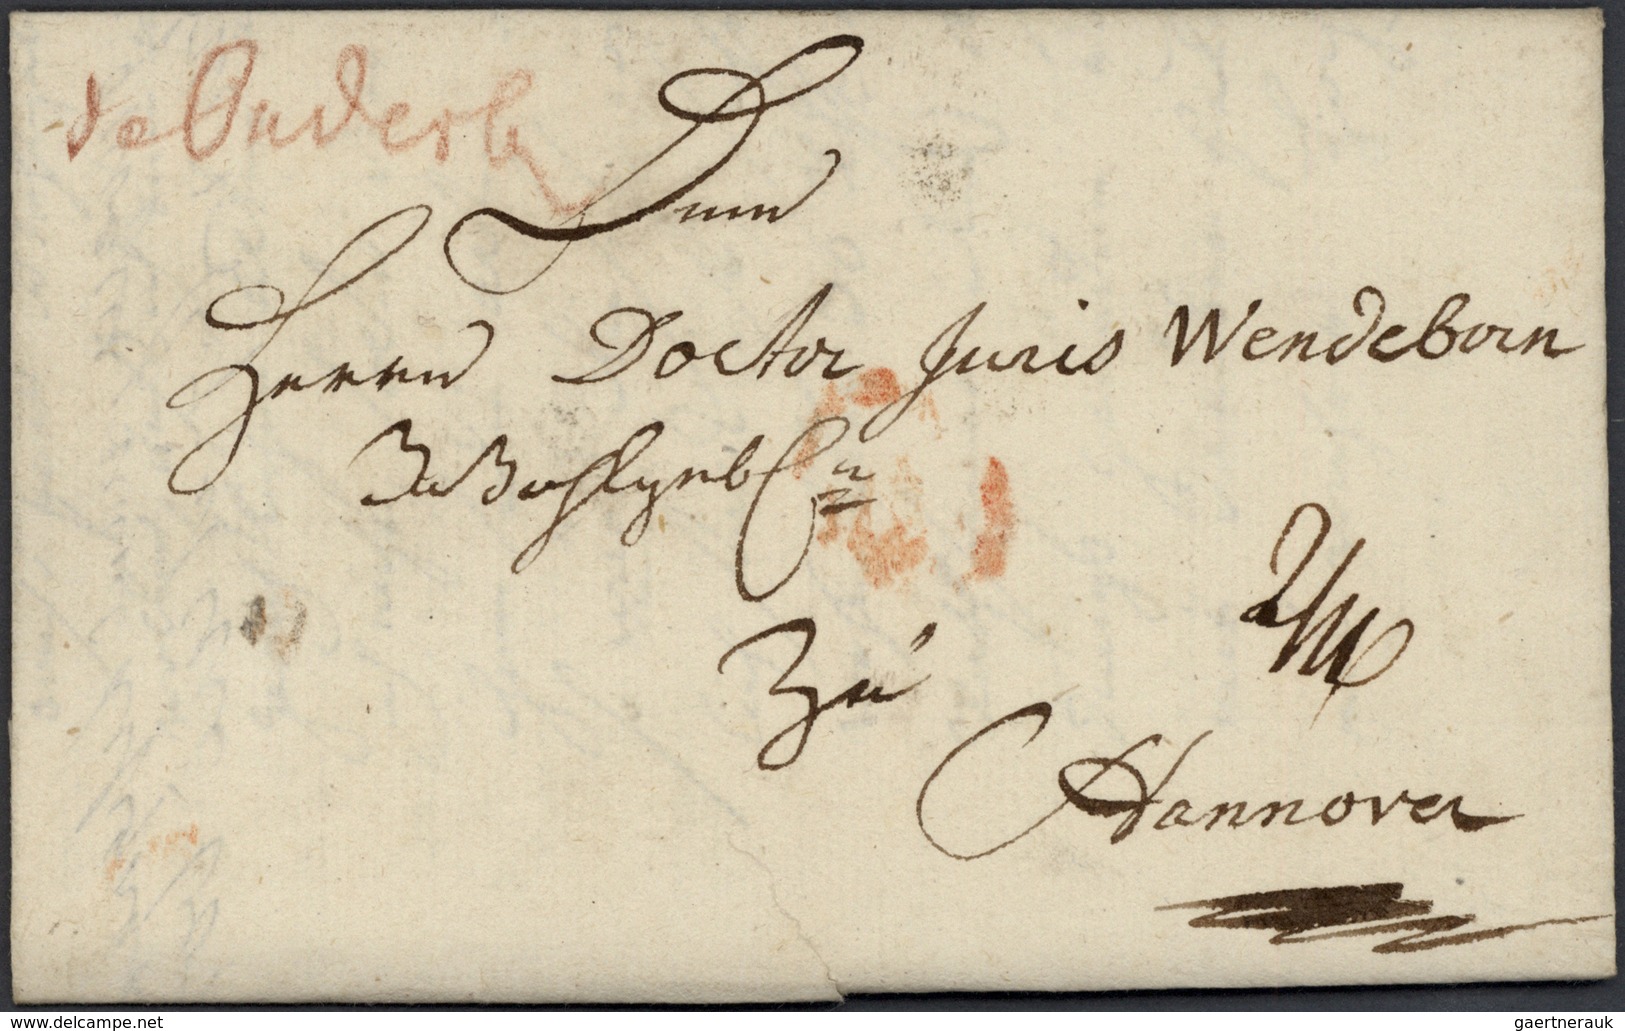 de
Dem
Herrn Doctor Juris Wendeborn
Zu
Hannover
www.delcampe.net
gaertnerauk